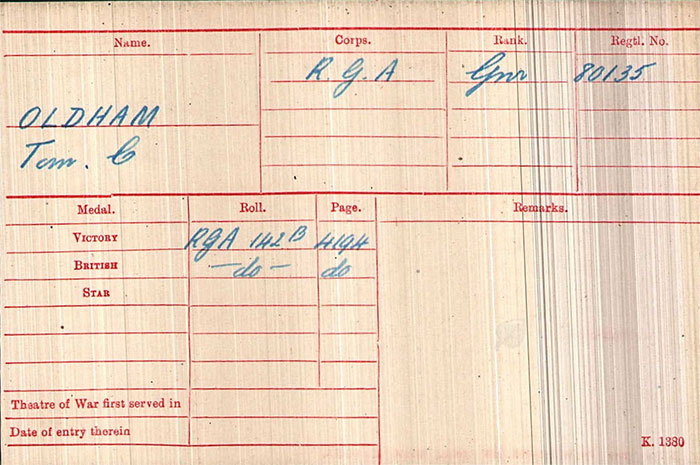 Name. Corps. Rank. Regtl. No.
R.G.A Gnr 80135
OLDHAM
Tom. C
Medal. Roll. Page. Remarks.
VICTORY RGA 142B 4194
BRITISH -do- do
STAR
Theatre of War first served in
Date of entry therein
K. 1380